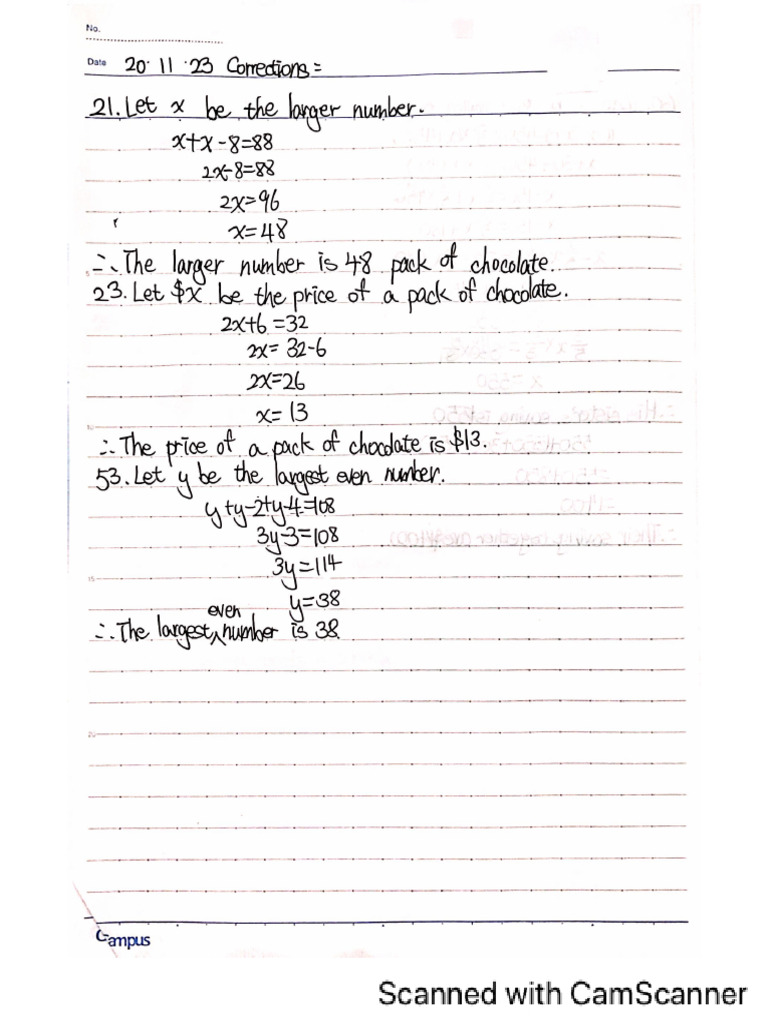 No.
Date 20·11·23 Corrections=
21. Let x be the larger number.
x+x-8=88
2x-8=88
2x=96
x=48
∴ The larger number is 48 pack of chocolate.
23. Let $x be the price of a pack of chocolate.
2x+6=32
2x=32-6
2x=26
x=13
∴ The price of a pack of chocolate is $13.
53. Let y be the largest even number.
y+y-2+y-4=108
3y-3=108
3y=114
y=38
even
∴ The largest number is 38
Campus
Scanned with CamScanner